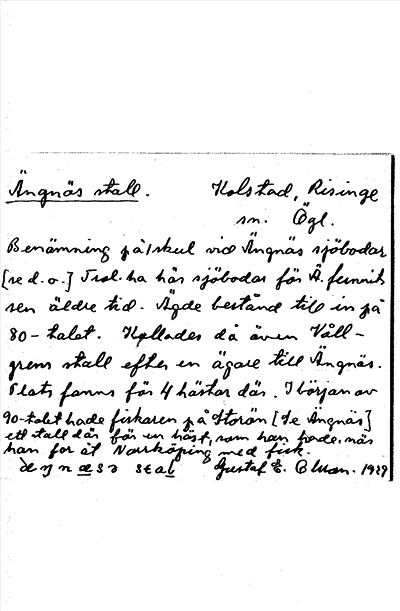 Ängnäs stall. Kolstad, Risinge
sn. Ögl.
Benämning på skul vid Ängnäs sjöbodar
[se d.o.] Trol. ha här sjöbodar för Ä. funnits
sen äldre tid. Ägde bestånd till in på
80-talet. Kallades då även Våll-
grens stall efter en ägare till Ängnäs.
Plats fanns för 4 hästar där. I början av
90-talet hade fiskaren på Storön [se Ängnäs]
ett stall där för en häst, som han hade när
han for åt Norrköping med fisk.
Gustaf E. 1929